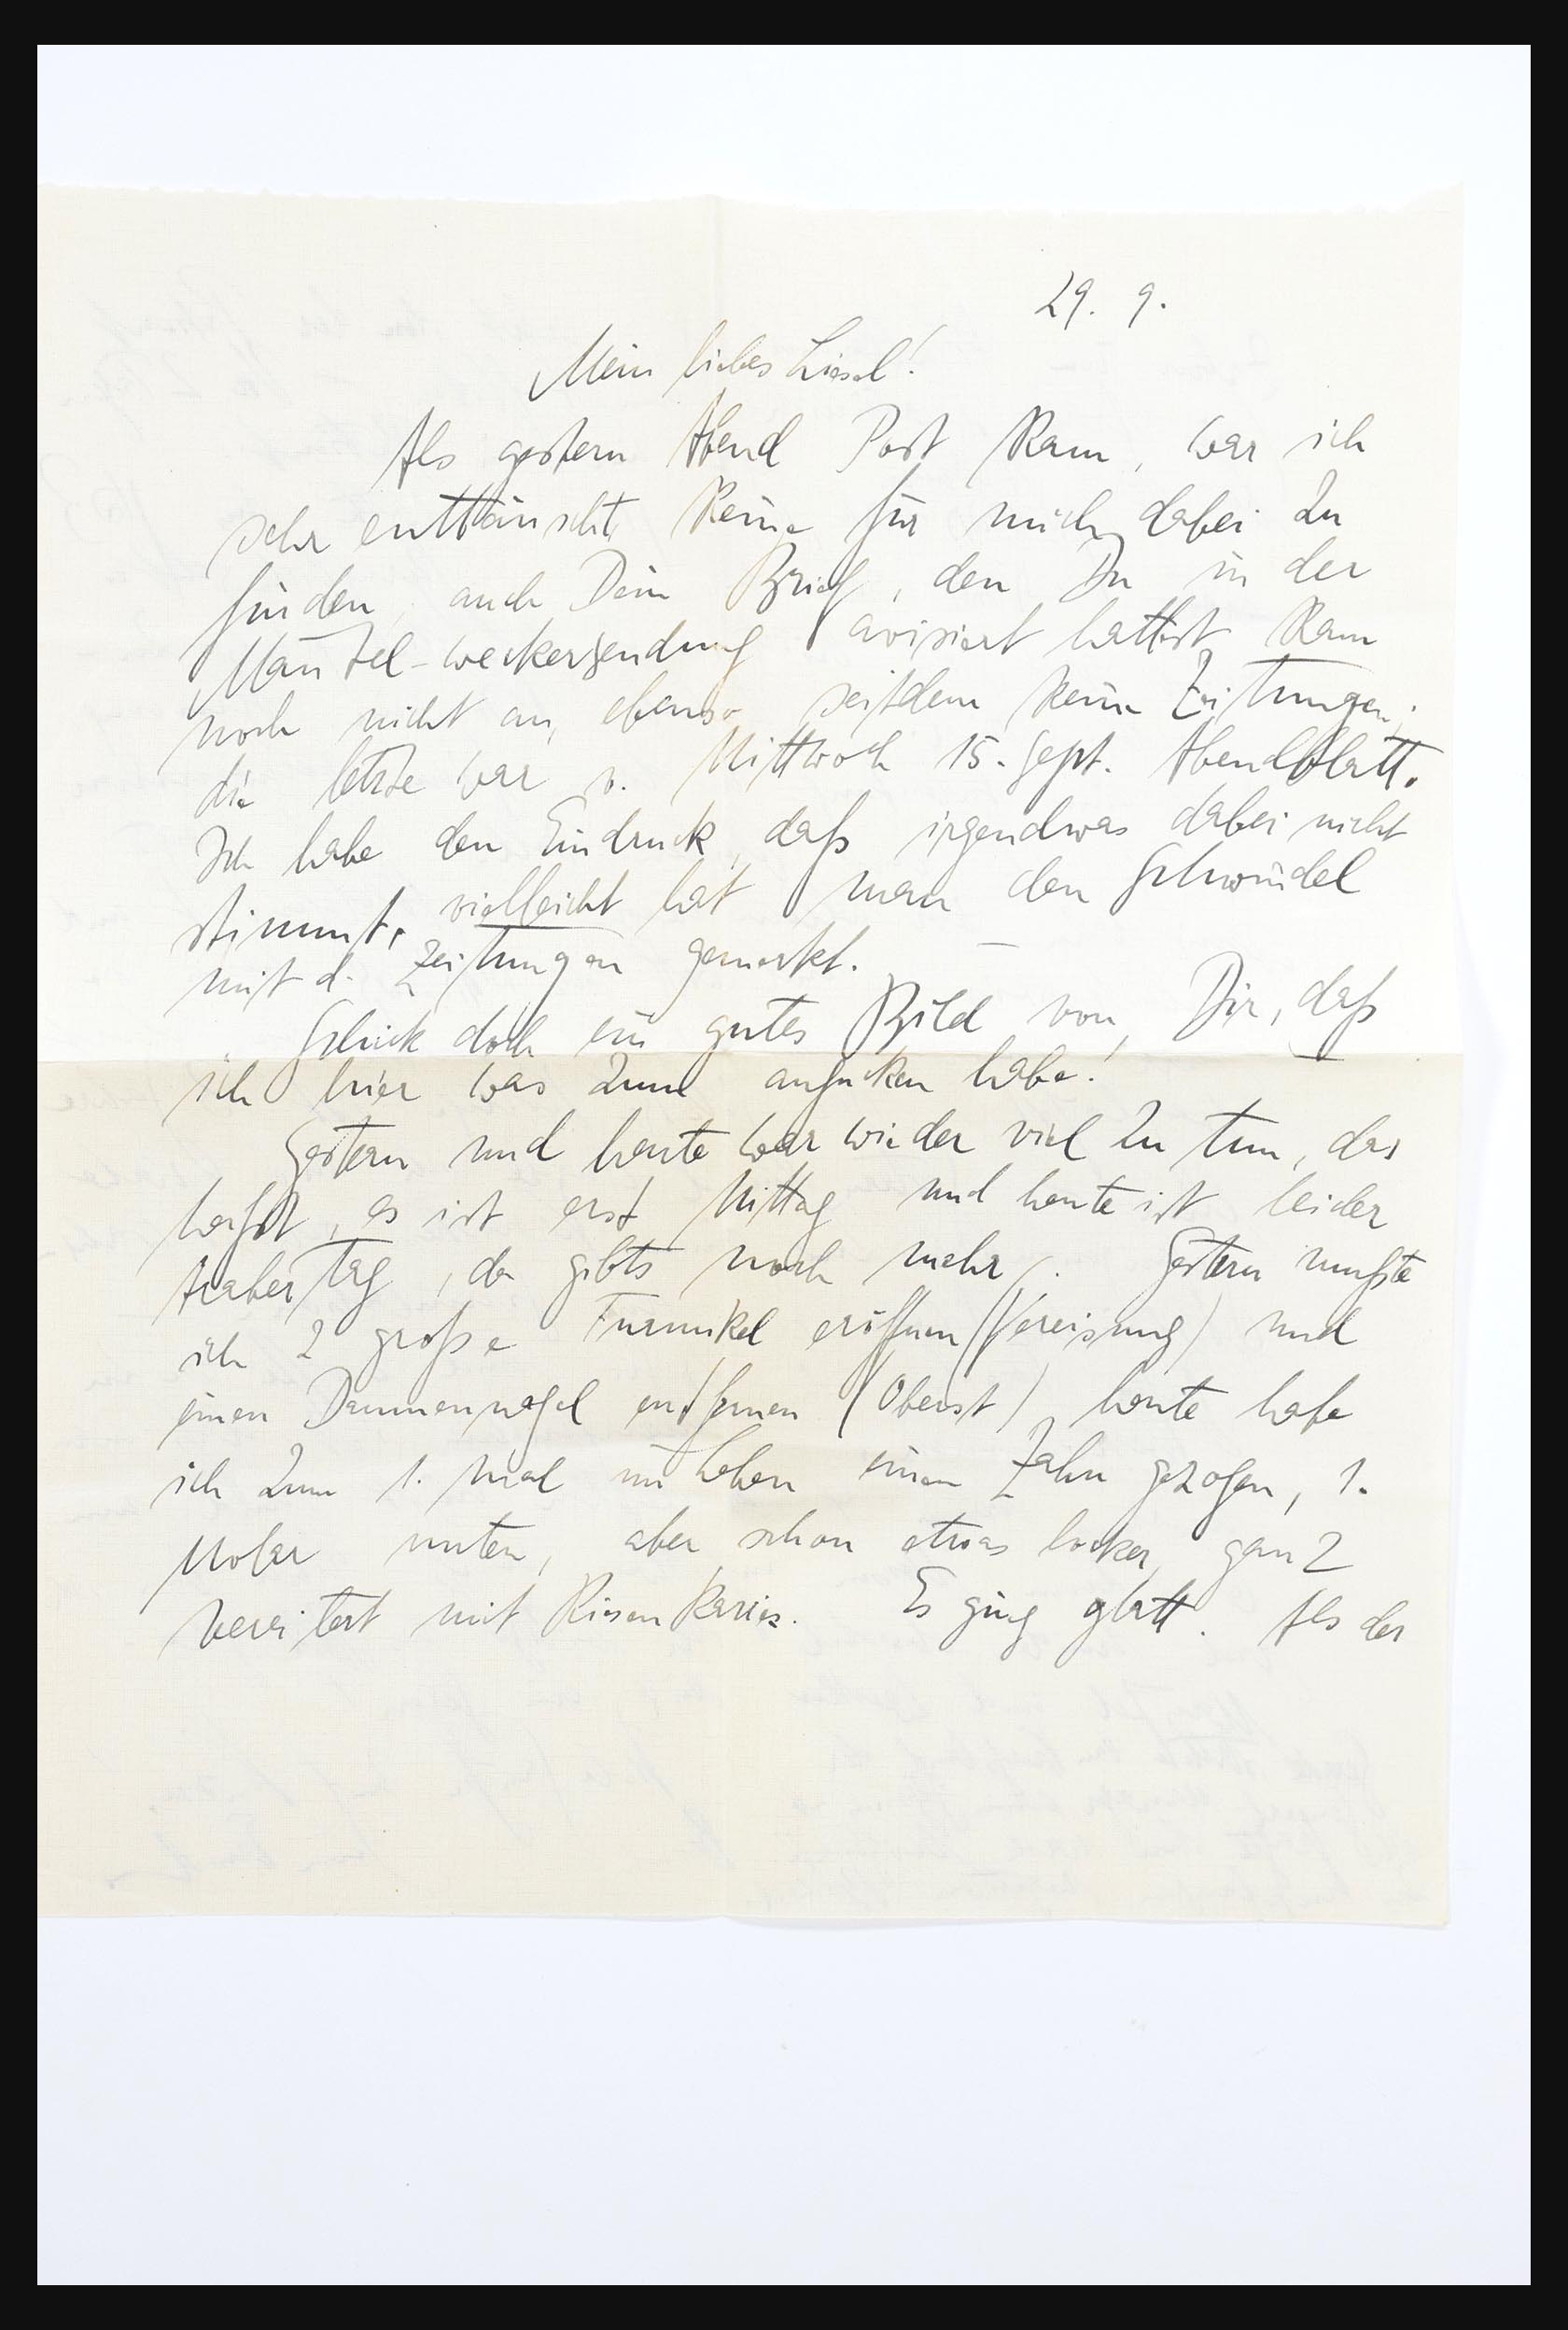 29. 9.
Mein liebes Liesel!
Als gestern Abend Post kam, war ich
sehr enttäuscht, keine für mich dabei zu
finden, auch Dein Brief, den Du in der
Mantel-weckersendung avisiert hattest kam
noch nicht an, ebenso seitdem keine Zeitungen;
die letzte war v. Mittwoch 15. Sept. Abendblatt.
Ich habe den Eindruck, daß irgendwas dabei nicht
stimmt, vielleicht hat man den Schwindel
mit d. Zeitungen gemerkt. —
Schick doch ein gutes Bild von Dir, daß
ich hier was zum angucken habe!
Gestern und heute war wieder viel zu tun, das
heißt, es ist erst Mittag und heute ist leider
Arabertag, da gibts noch mehr. Gestern mußte
ich 2 große Furunkel eröffnen (Vereisung) und
einen Daumennagel entfernen (Oberst) heute habe
ich zum 1. Mal im Leben einen Zahn gezogen, 1.
Molar unten, aber schon etwas locker, ganz
vereitert mit Riesenkaries. Es ging glatt. Als der